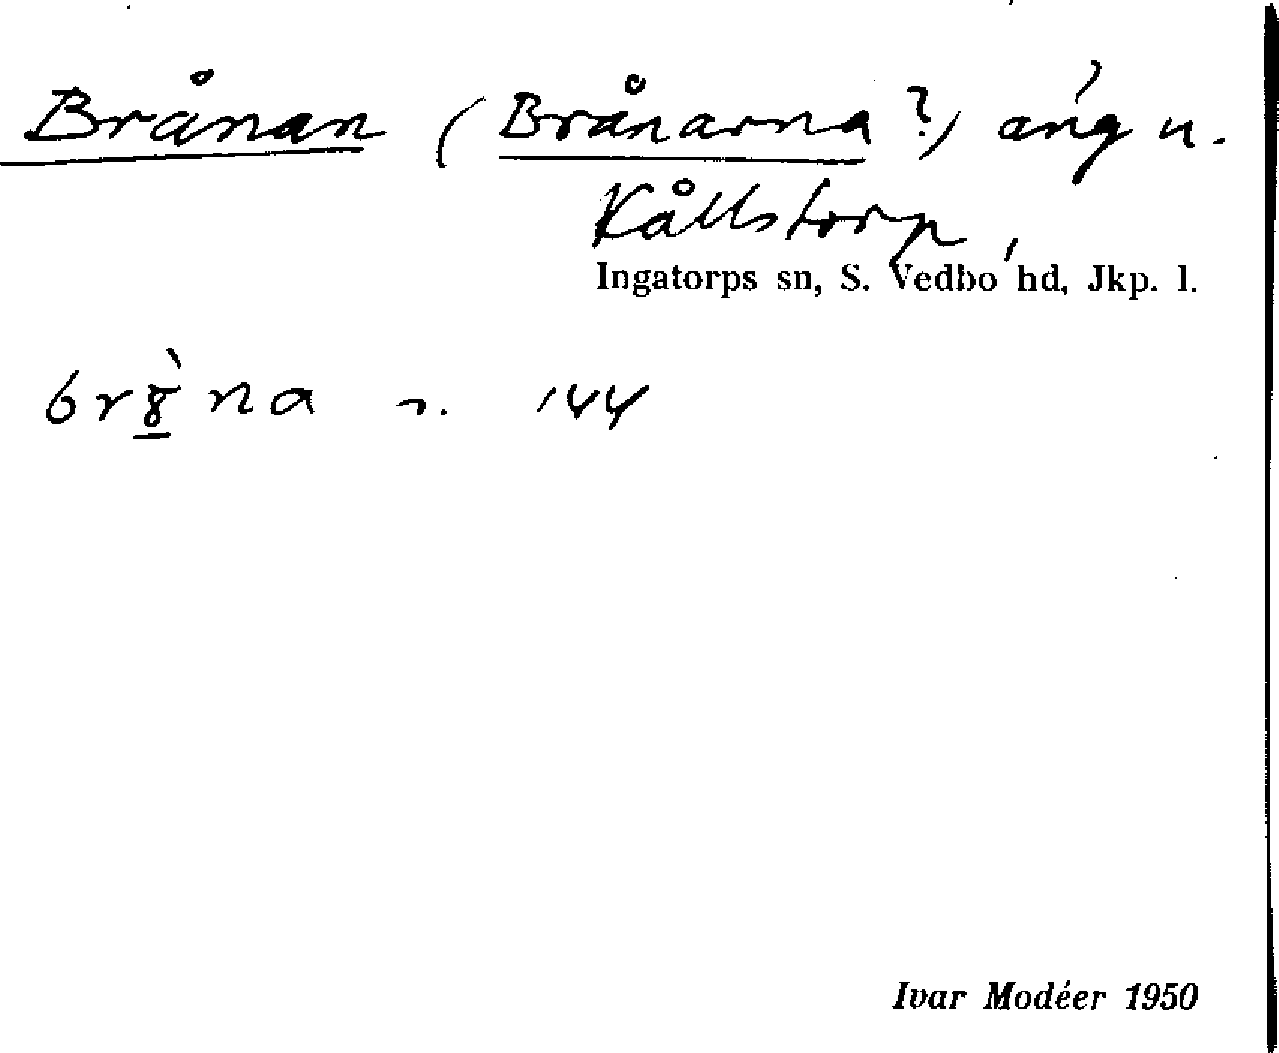 Brånan (Brånarna?) äng u.
Kållstorp,
Ingatorps sn, S. Vedbo hd, Jkp. l.
br8̲̀na n. 144
Ivar Modéer 1950